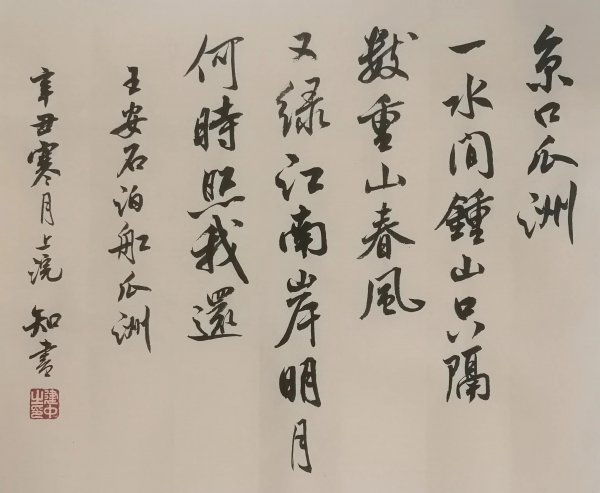 京口瓜洲
一水間鍾山只隔
數重山春風
又緑江南岸明月
何時照我還
王安石泊船瓜洲
辛丑寒月上浣 知書
建中之印